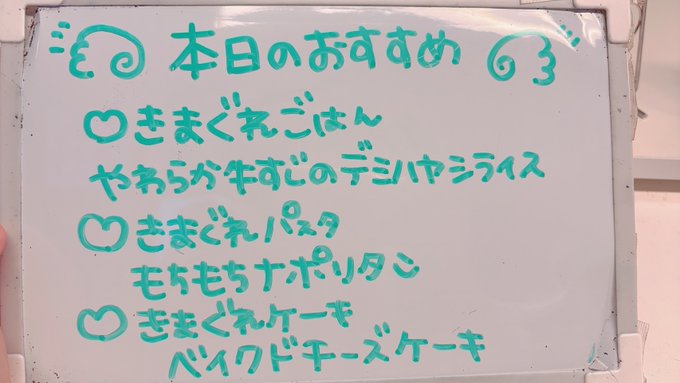 本日のおすすめ
♡きまぐれごはん
やわらか牛すじのデミハヤシライス
♡きまぐれパスタ
もちもちナポリタン
♡きまぐれケーキ
ベイクドチーズケーキ